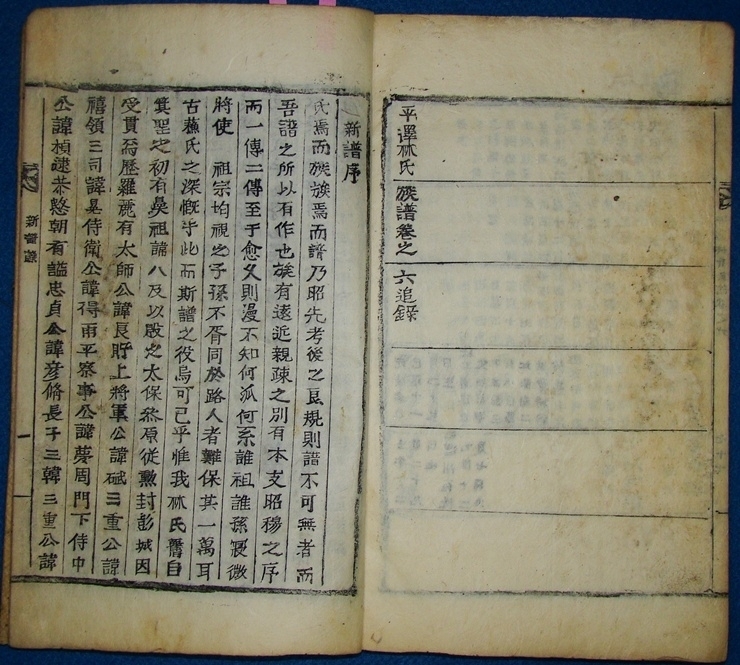 平澤林氏 族譜卷之 六追錄
新譜序
氏焉而族族焉而譜乃昭先考後之良規則譜不可無者而
吾譜之所以有作也族有遠近親疎之別有本支昭穆之序
而一傳二傳至于愈久則漫不知何派何系誰祖誰孫寢微
將使 祖宗均視之子孫不胥同於路人者難保其一萬耳
古蘓氏之深慨乎此而斯譜之役烏可已乎惟我林氏奮自
箕聖之初有鼻祖諱八及以殷之太保發原從勲封彭城因
受貫焉歷羅麗有太師公諱良貯上將軍公諱碱三重公諱
禧領三司諱 侍衛公諱得雨平察事公諱夢周門下侍中
公諱楨逮恭愍朝有諡忠貞公諱彦脩長子三韓三重公諱
新譜 一